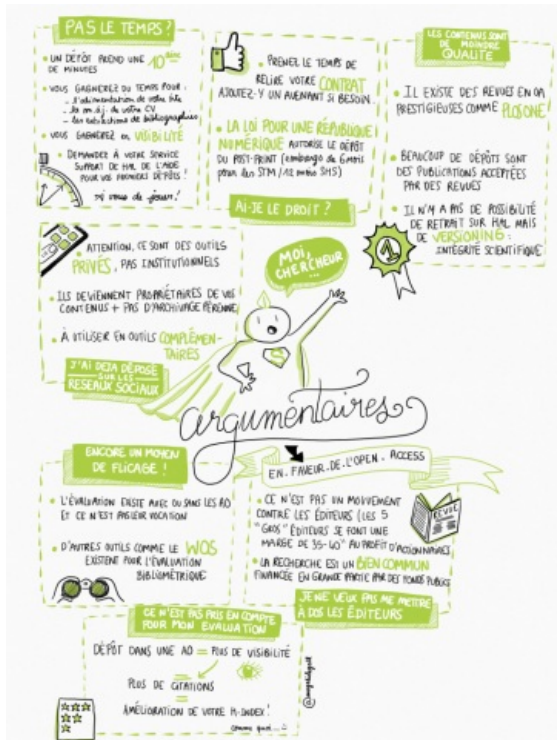 PAS LE TEMPS ?
UN DÉPÔT PREND UNE 10aine
DE MINUTES
VOUS GAGNEREZ DU TEMPS POUR :
- l'alimentation de votre
- la m.à.j. de votre CV
- les extractions de bibliographies
VOUS GAGNEREZ en VISIBILITÉ
DEMANDEZ À VOTRE SERVICE
SUPPORT DE HAL DE L'AIDE
POUR VOS PREMIERS DÉPÔTS !
à vous de jouer !
PRENEZ LE TEMPS DE
RELIRE VOTRE CONTRAT
AJOUTEZ-Y UN AVENANT SI BESOIN.
LA LOI POUR UNE RÉPUBLIQUE
NUMÉRIQUE AUTORISE LE DÉPÔT
DU POST-PRINT (embargo de 6 mois
pour les STM / 12 mois SHS)
AI-JE LE DROIT ?
LES CONTENUS SONT
DE MOINDRE
QUALITÉ
IL EXISTE DES REVUES EN OA
PRESTIGIEUSES COMME PLOS ONE !
BEAUCOUP DE DÉPÔTS SONT
DES PUBLICATIONS ACCEPTÉES
PAR DES REVUES
IL N'Y A PAS DE POSSIBILITÉ
DE RETRAIT SUR HAL MAIS
DE VERSIONING :
INTÉGRITÉ SCIENTIFIQUE
1
ATTENTION, CE SONT DES OUTILS
PRIVÉS, PAS INSTITUTIONNELS
ILS DEVIENNENT PROPRIÉTAIRES DE VOS
CONTENUS + PAS D'ARCHIVAGE PÉRENNE
À UTILISER EN OUTILS COMPLÉMEN-
TAIRES
J'AI DEJA DÉPOSÉ
SUR LES
RESEAUX SOCIAUX
MOI,
CHERCHEUR
...
S
argumentaires
EN . FAVEUR . DE . L'OPEN . ACCESS
ENCORE UN MOYEN
DE FLICAGE !
L'ÉVALUATION EXISTE AVEC OU SANS LES AO
ET CE N'EST PAS LEUR VOCATION
D'AUTRES OUTILS COMME LE WOS
EXISTENT POUR L'ÉVALUATION
BIBLIOMÉTRIQUE
CE N'EST PAS UN MOUVEMENT
CONTRE LES ÉDITEURS (LES 5
"GROS" ÉDITEURS SE FONT UNE
MARGE DE 35-40% AU PROFIT D'ACTIONNAIRES
LA RECHERCHE EST UN BIEN COMMUN
FINANCÉE EN GRANDE PARTIE PAR DES FONDS PUBLICS
REVUE
JE NE VEUX PAS ME METTRE
À DOS LES ÉDITEURS
CE N'EST PAS PRIS EN COMPTE
POUR MON EVALUATION
DÉPÔT DANS UNE AO = PLUS DE VISIBILITÉ
PLUS DE CITATIONS
=
AMÉLIORATION DE VOTRE H-INDEX !
comme quoi...